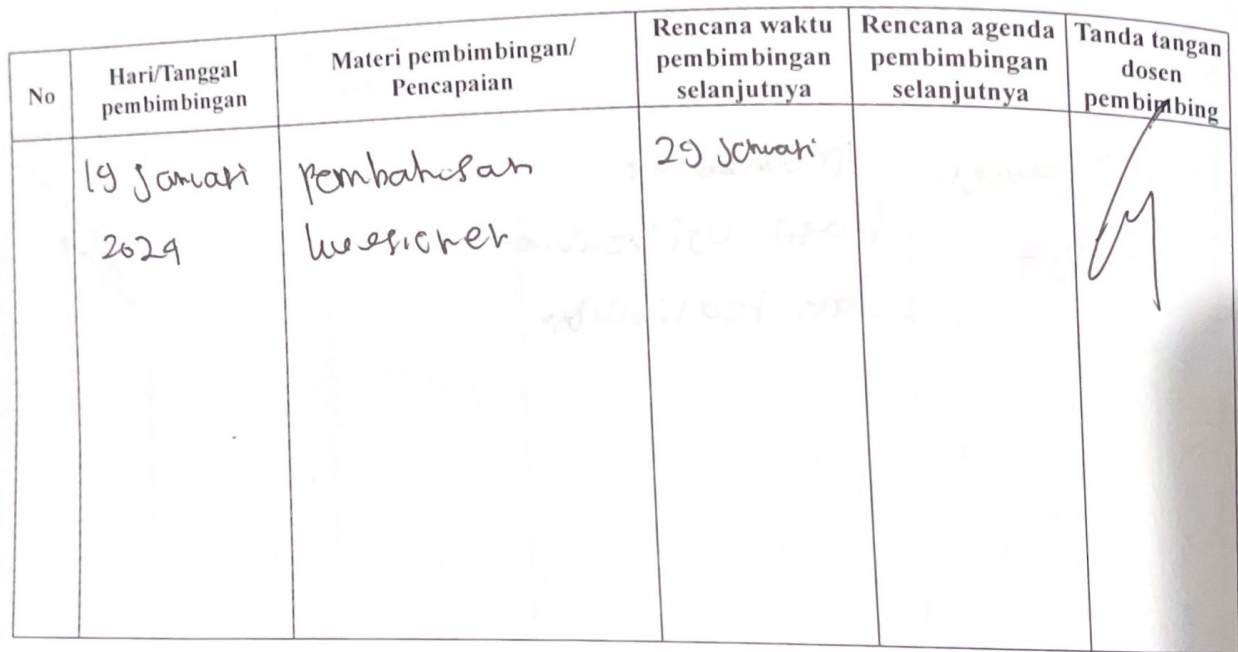 No
Hari/Tanggal
pembimbingan
Materi pembimbingan/
Pencapaian
Rencana waktu
pembimbingan
selanjutnya
Rencana agenda
pembimbingan
selanjutnya
Tanda tangan
dosen
pembimbing
19 Januari
2024
Pembahasan
kuesioner
29 Januari